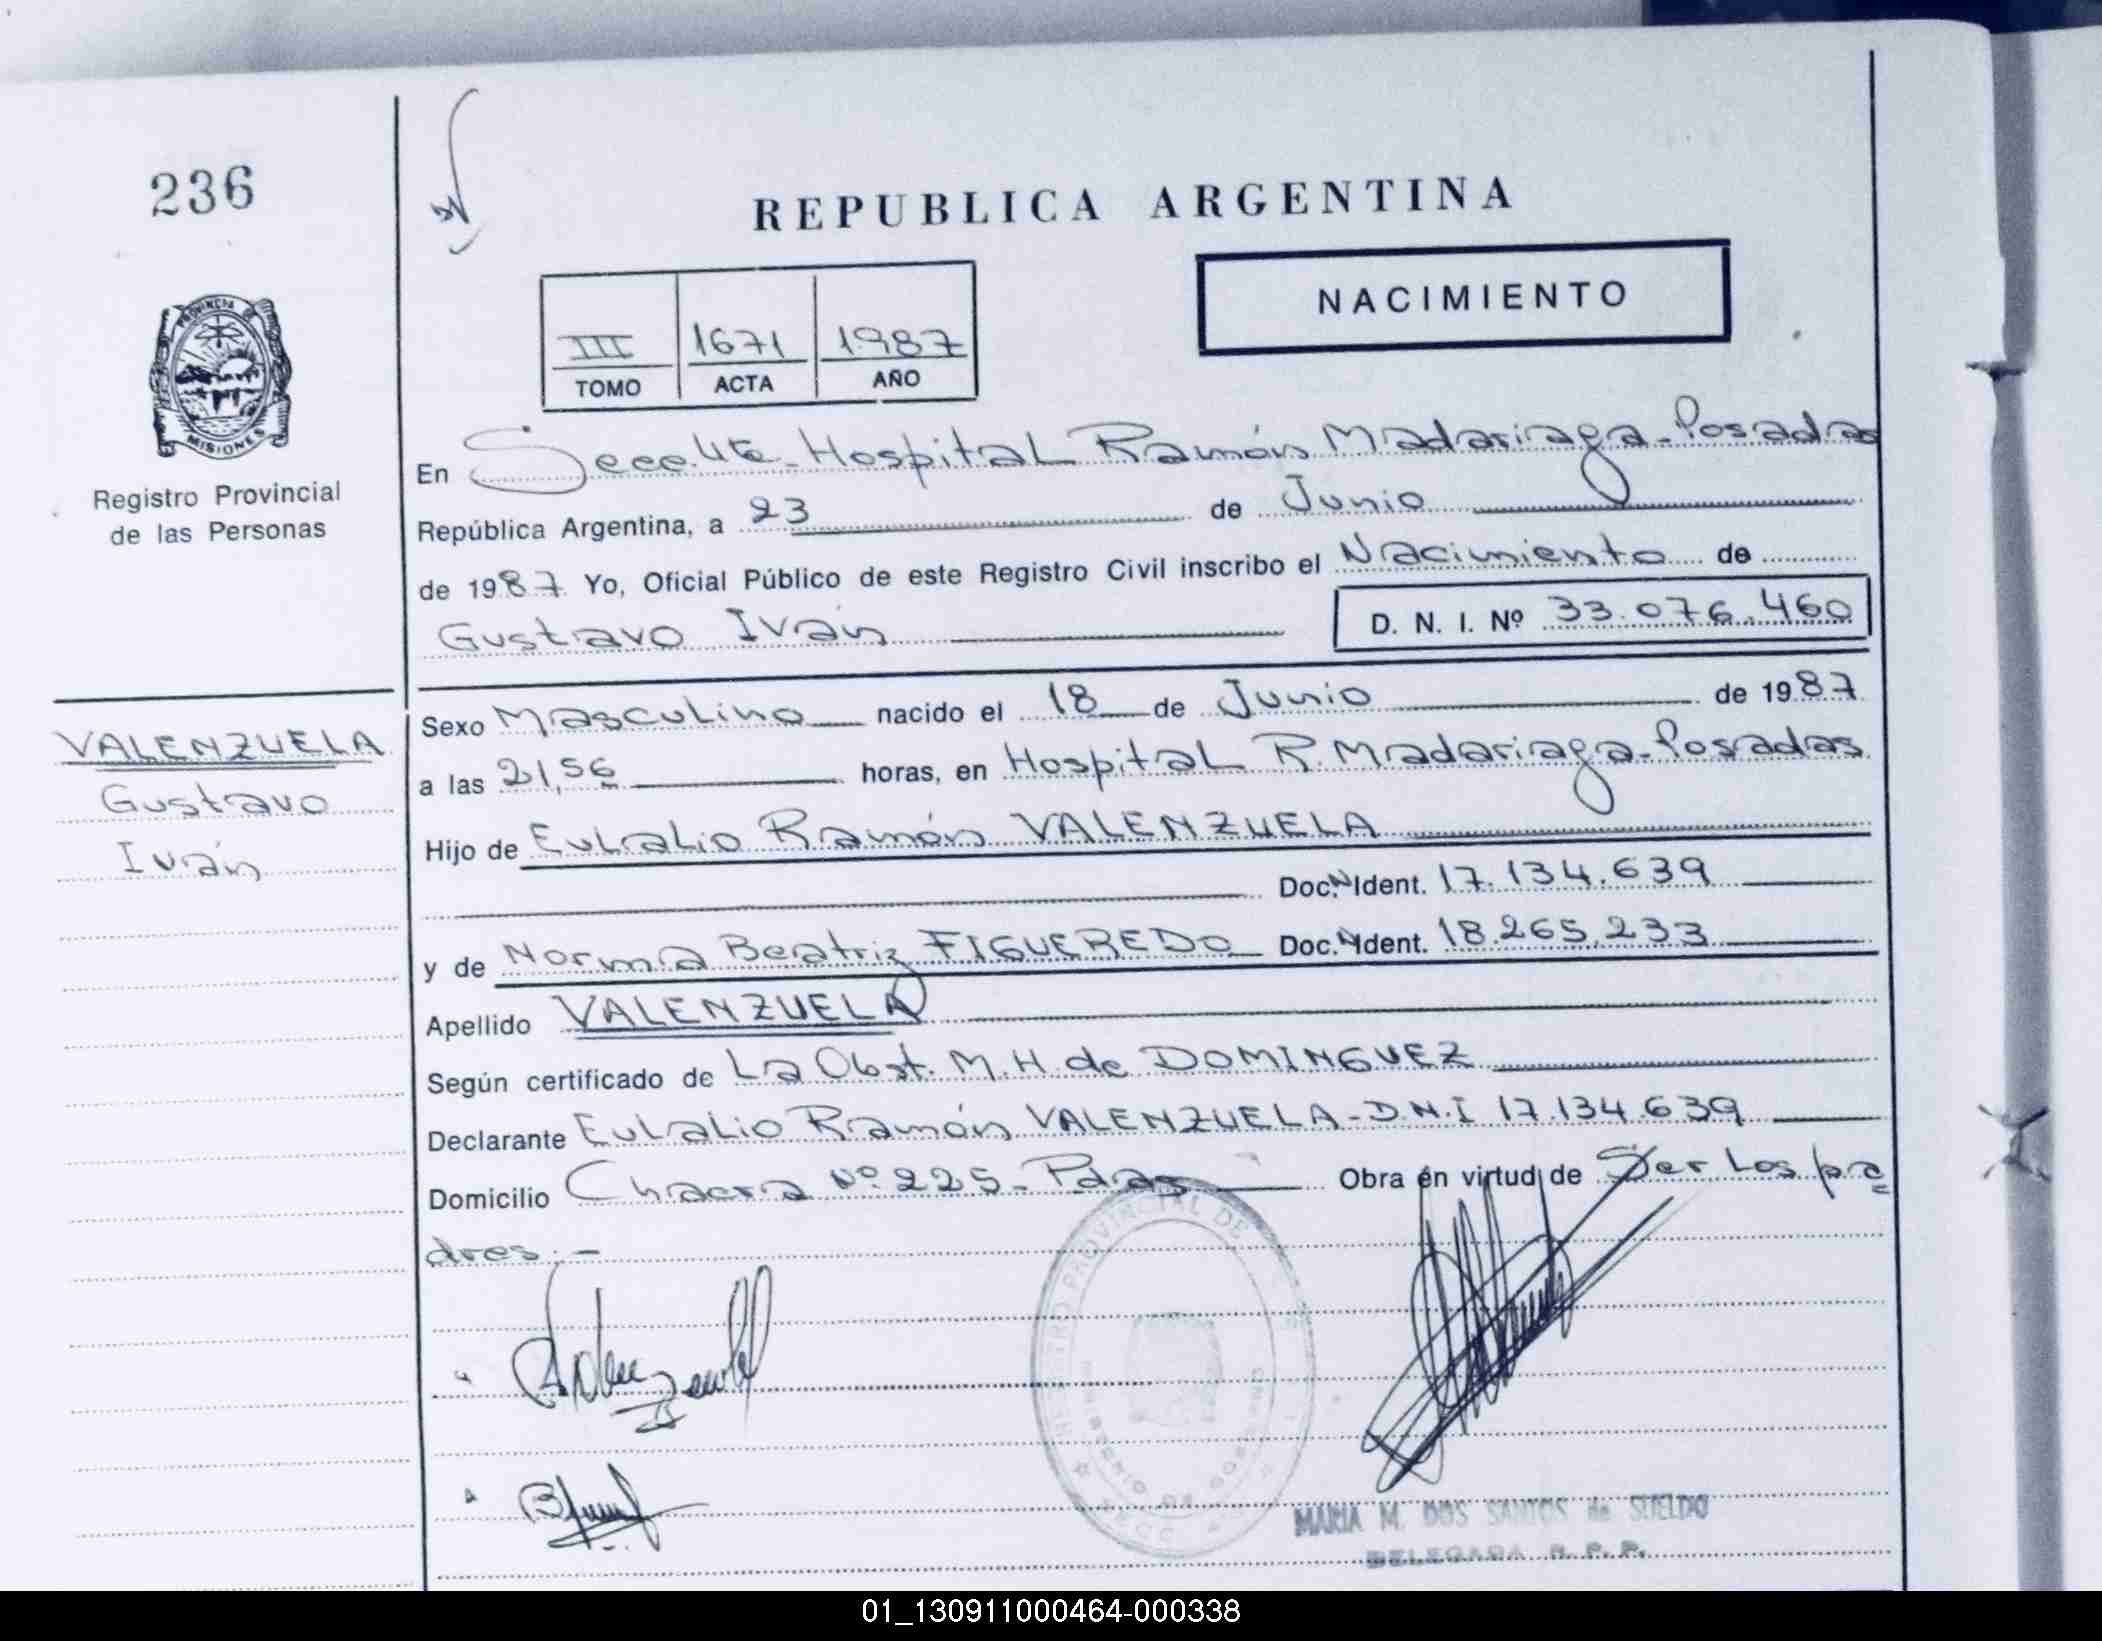 236
REPUBLICA ARGENTINA
NACIMIENTO
III 1671 1987
TOMO ACTA AÑO
PROVINCIA DE
MISIONES
Registro Provincial
de las Personas
En Secc. 4ta - Hospital Ramón Madariaga - Posadas
República Argentina, a 23 de Junio
de 1987 Yo, Oficial Público de este Registro Civil inscribo el Nacimiento de
Gustavo Iván D. N. I. Nº 33.076.460
VALENZUELA
Gustavo
Iván
Sexo Masculino nacido el 18 de Junio de 1987
a las 21,56 horas, en Hospital R. Madariaga - Posadas
Hijo de Eulalio Ramón VALENZUELA
Doc. N Ident. 17.134.639
y de Norma Beatriz FIGUEREDO Doc. N Ident. 18.265.233
Apellido VALENZUELA
Según certificado de La Obst. M. H. de DOMINGUEZ
Declarante Eulalio Ramón VALENZUELA - D.N.I 17.134.639
Domicilio Chacra Nº 225 - Pdas Obra en virtud de Ser Los pa
dres. -
REGISTRO PROVINCIAL DE
MINISTERIO DE GOBIERNO
MARIA M. DOS SANTOS de SUELDO
DELEGADA R. P. P.
01_130911000464-000338